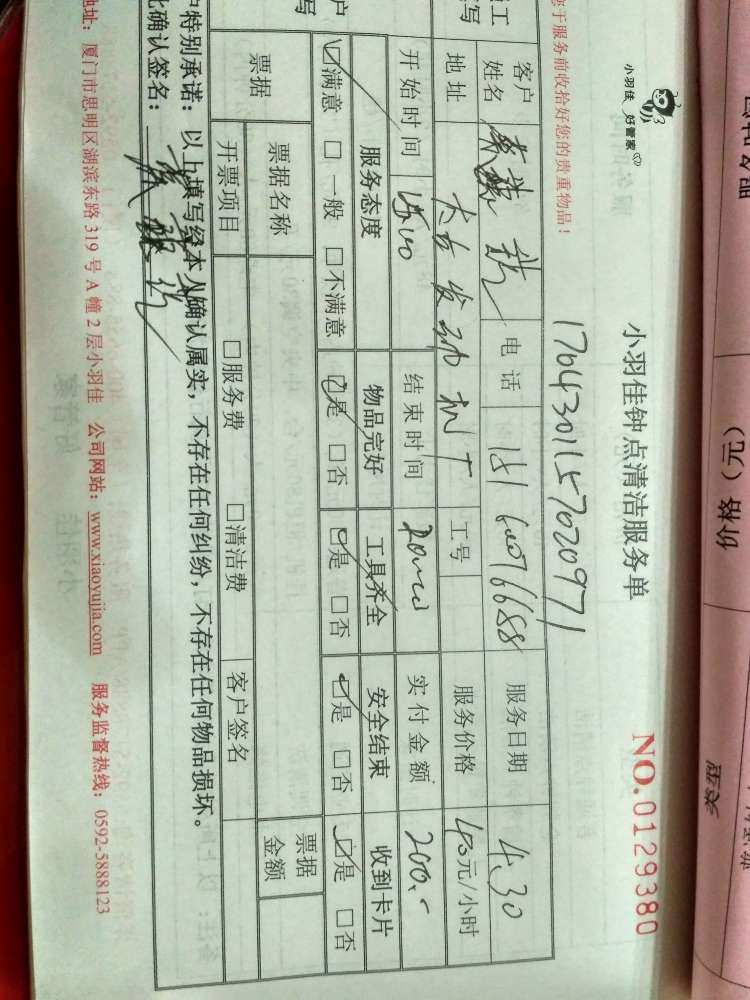 小羽佳 好管家
小羽佳钟点清洁服务单
NO.0129380
您于服务前收拾好您的贵重物品！
1704301157020971
客户
姓名
电话
服务日期 4.30
地址 太古发动机厂
工号
服务价格 40元/小时
开始时间 15:00
结束时间 20:00
实付金额 200.-
服务态度 物品完好 工具齐全 安全结束 收到卡片
☑满意 □一般 □不满意 ☑是 □否 ☑是 □否 ☑是 □否 ☑是 □否
票据 票据名称 票据金额
开票项目 □服务费 □清洁费 客户签名
户特别承诺：以上填写经本人确认属实，不存在任何纠纷，不存在任何物品损坏。
此确认签名：
地址：厦门市思明区湖滨东路 319 号 A 幢 2 层小羽佳 公司网站：www.xiaoyujia.com 服务监督热线：0592-5888123
价格（元）